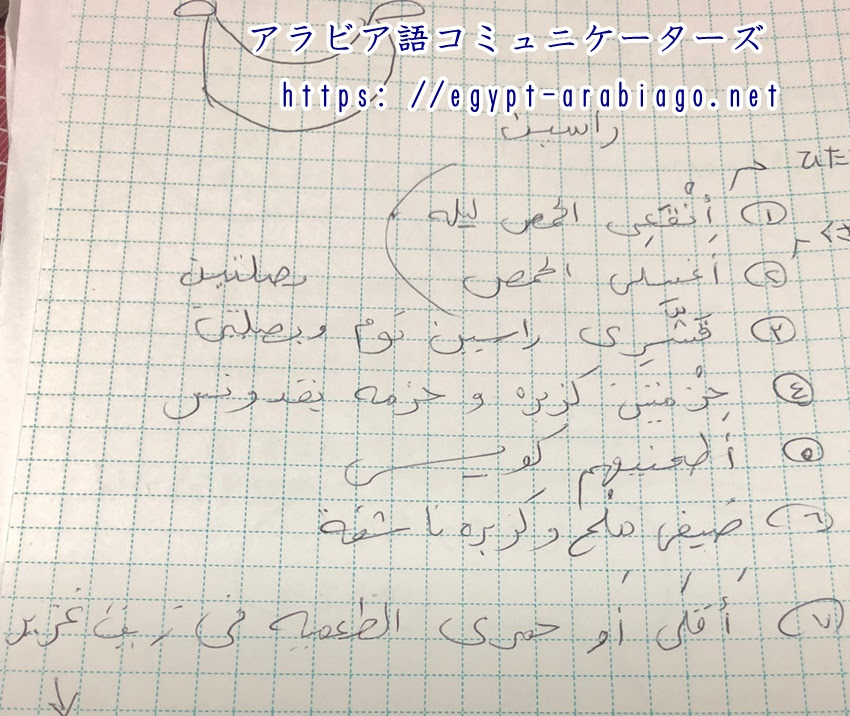 アラビア語コミュニケーターズ
https://egypt-arabiago.net
راسين
ひた
١ إِنْقَعِى الحمص ليله
くさ
٢ أغسلى الحمص
بصلتين
٣ قَشَّرِى راسين توم وبصلتين
٤ حِزْمتين كزبره و حزمه بقدونس
٥ أطحنيهم كويس
٦ ضِيفى مِلْح وكزبره ناشفة
٧ أِقلِى أو حمرى الطعميه فى زيت غزير